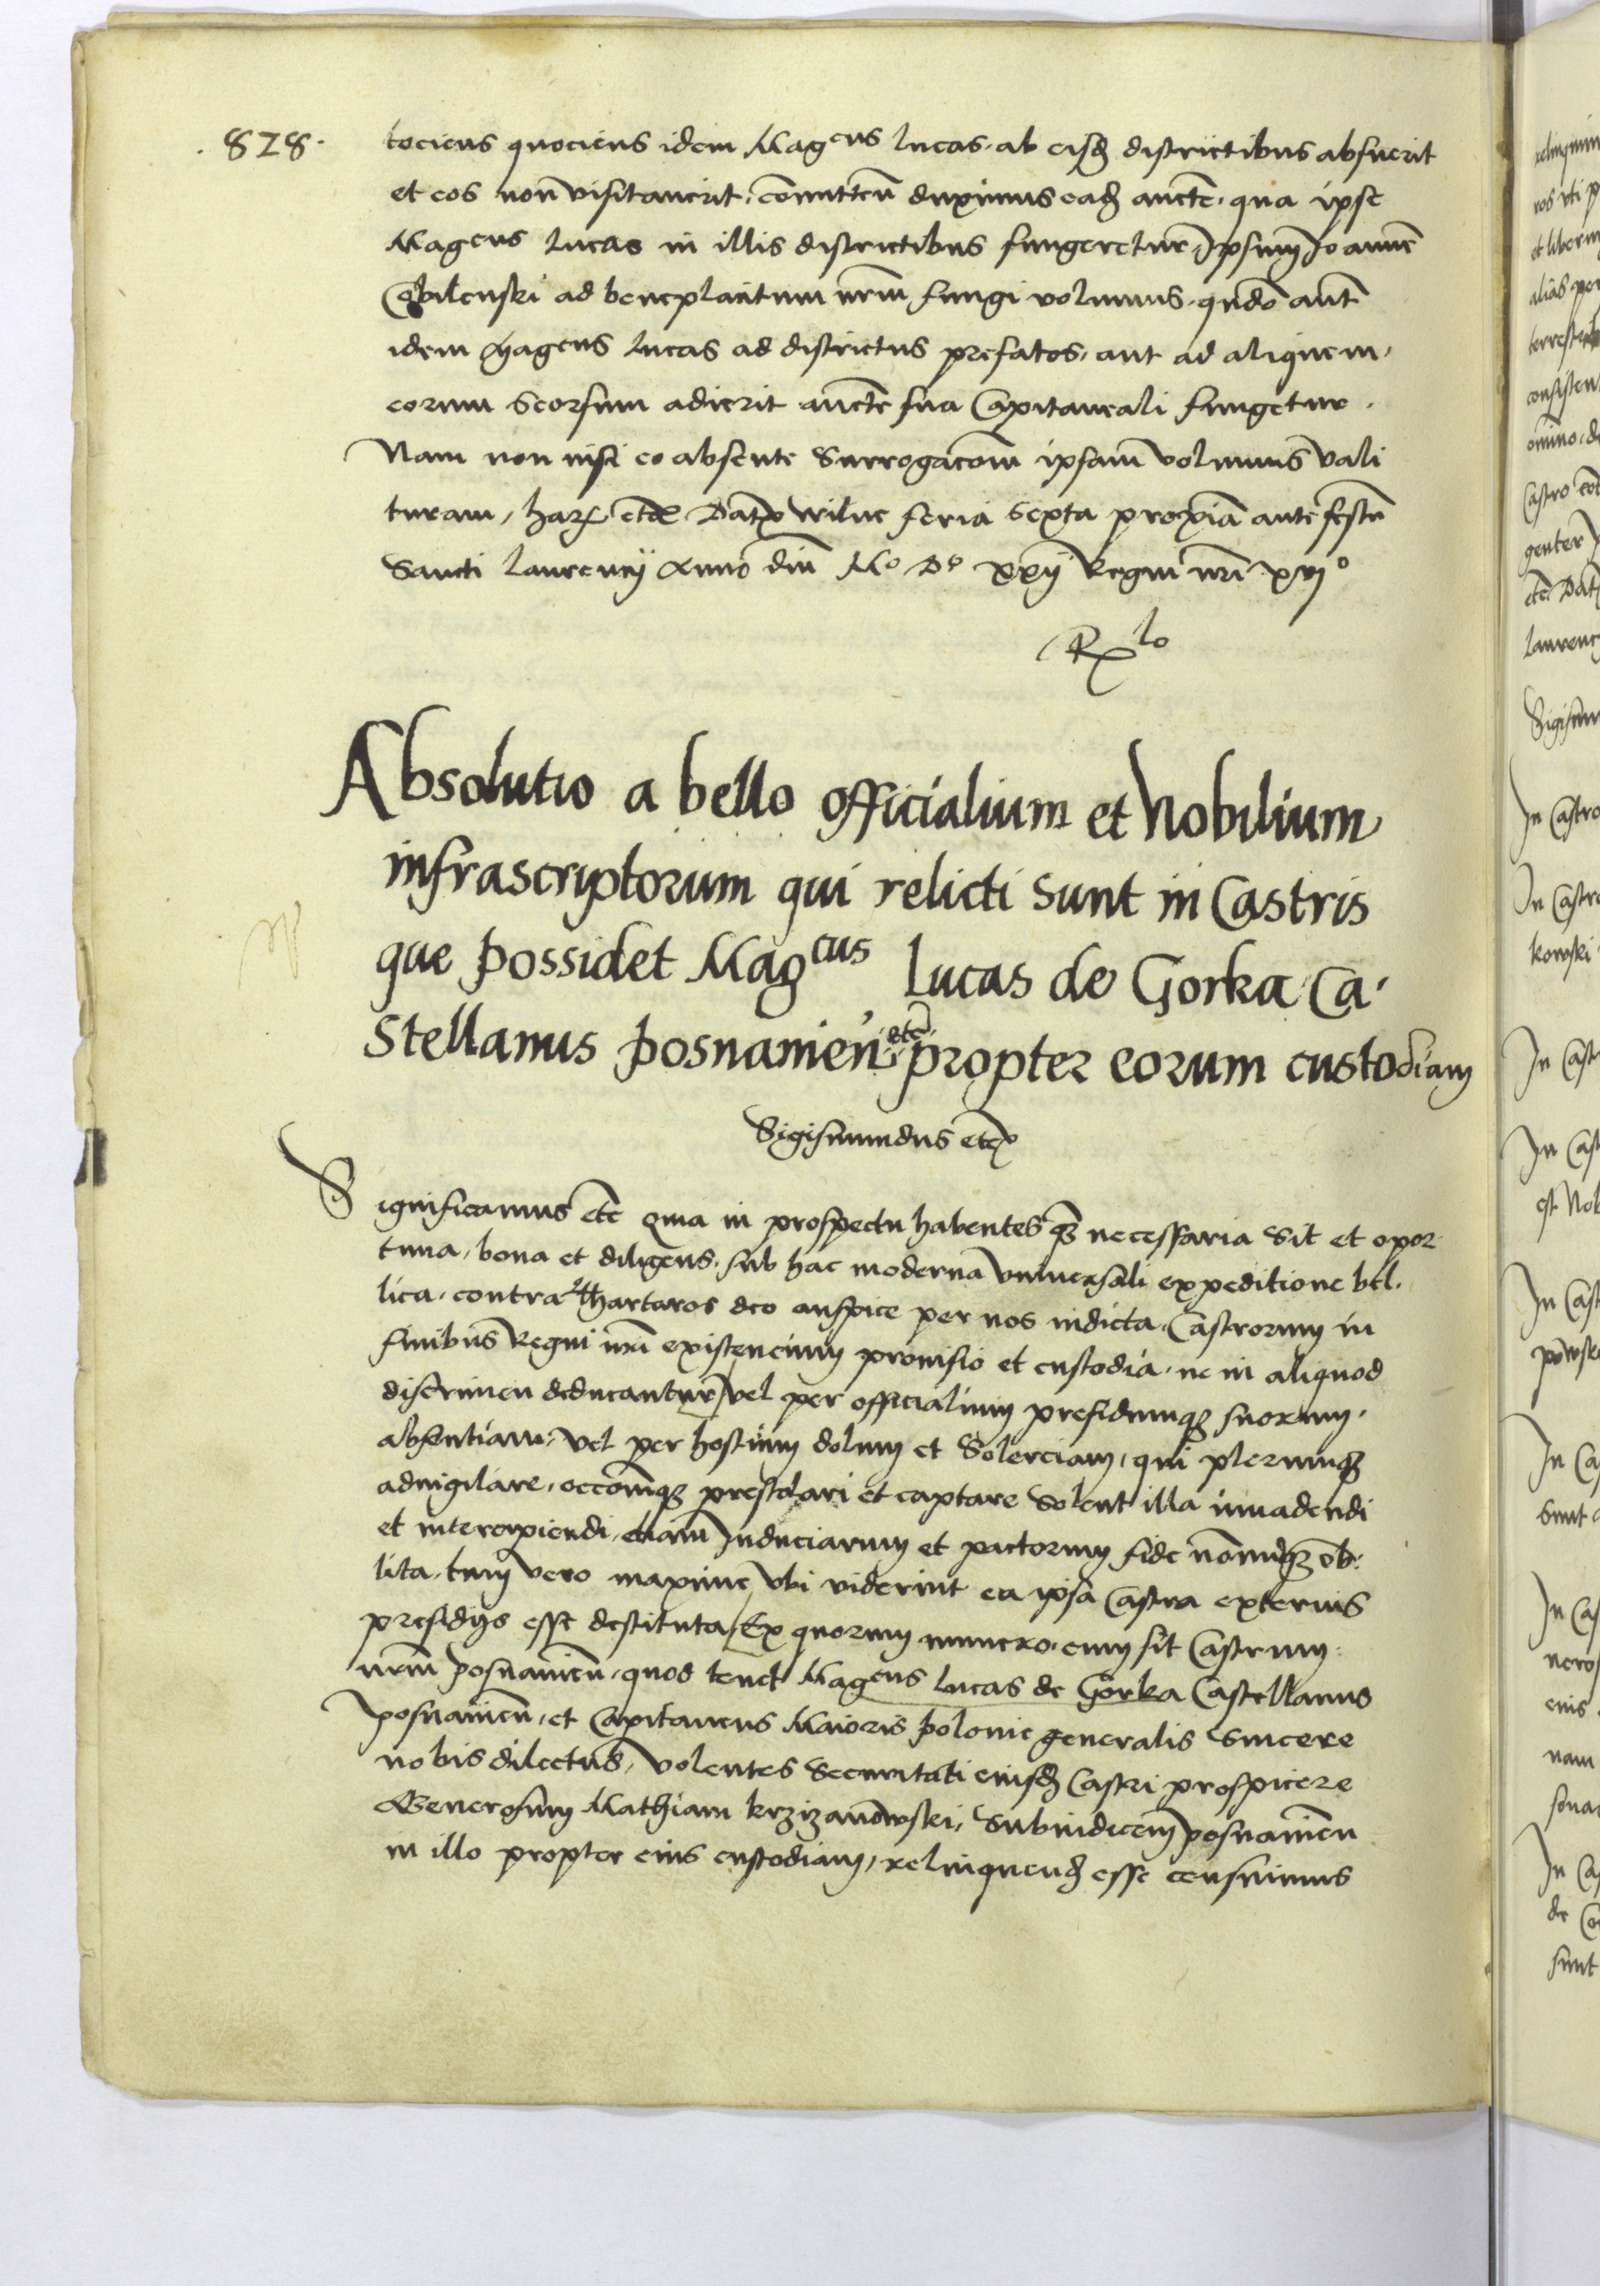 .878.
tociens quociens idem Magcus Lucas. ab eisd districtibus abfuerit
et eos non visitaverit. committen duximus. ead aucte. qua ipse
Magcus Lucas in illis districtibus fungeretur. Ipsum Joanne
ad beneplacitum nrm fungi volumus. qndo aut
idem Magcus Lucas ad districtus prefatos. aut ad aliquem.
eorum Seorsum adierit aucte sua Capitaneali fungetur.
Nam non nisi eo absente Surrogacom ipsam volumus vali
turam, har etc Dat wilne feria Sexta proxia ante festu
Sancti Laurencij Anno dni Mo Do xxij Regni nri xvjo
Rlo
Absolutio a bello officialium et Nobilium
infrascriptorum qui relicti sunt in Castris
que possidet Magcus Lucas de Gorka Ca.
Stellanus posnanien. etc propter eorum custodiam
Sigismundus etc
Significamus etc Quia in prospectu habentes q necessaria Sit et opor
tuna, bona et diligens. sub hac moderna universali expeditione bel.
lica. contra Thartaros deo auspice per nos indicta. Castrorum in
finibus Regni nri existencium provisio et custodia. ne in aliquod
discrimen deducantur, vel per officialium presidumq suorum.
absentiam, vel per hostium dolum et Solerciam, qui plerumq
advigilare, occomq prestolari et captare Solent illa invadendi
et intercipiendi, etiam Induciarum et pactorum fide nonnuq ob:
lita. tum vero maxime vbi viderint ea ipsa Castra externis
presidijs esse destituta, Ex quorum numero. cum sit Castrum
nrm posnanien, quod tenet Magcus Lucas de Gorka Castellanus
posnanien, et Capitaneus Maioris polonie generalis Sincere
nobis dilectus, Volentes Securitati eiusd Castri prospicere
Generosum Mathiam krzizanowski, Subiudicem posnanien
in illo propter eius custodiam, relinquend esse censuimus